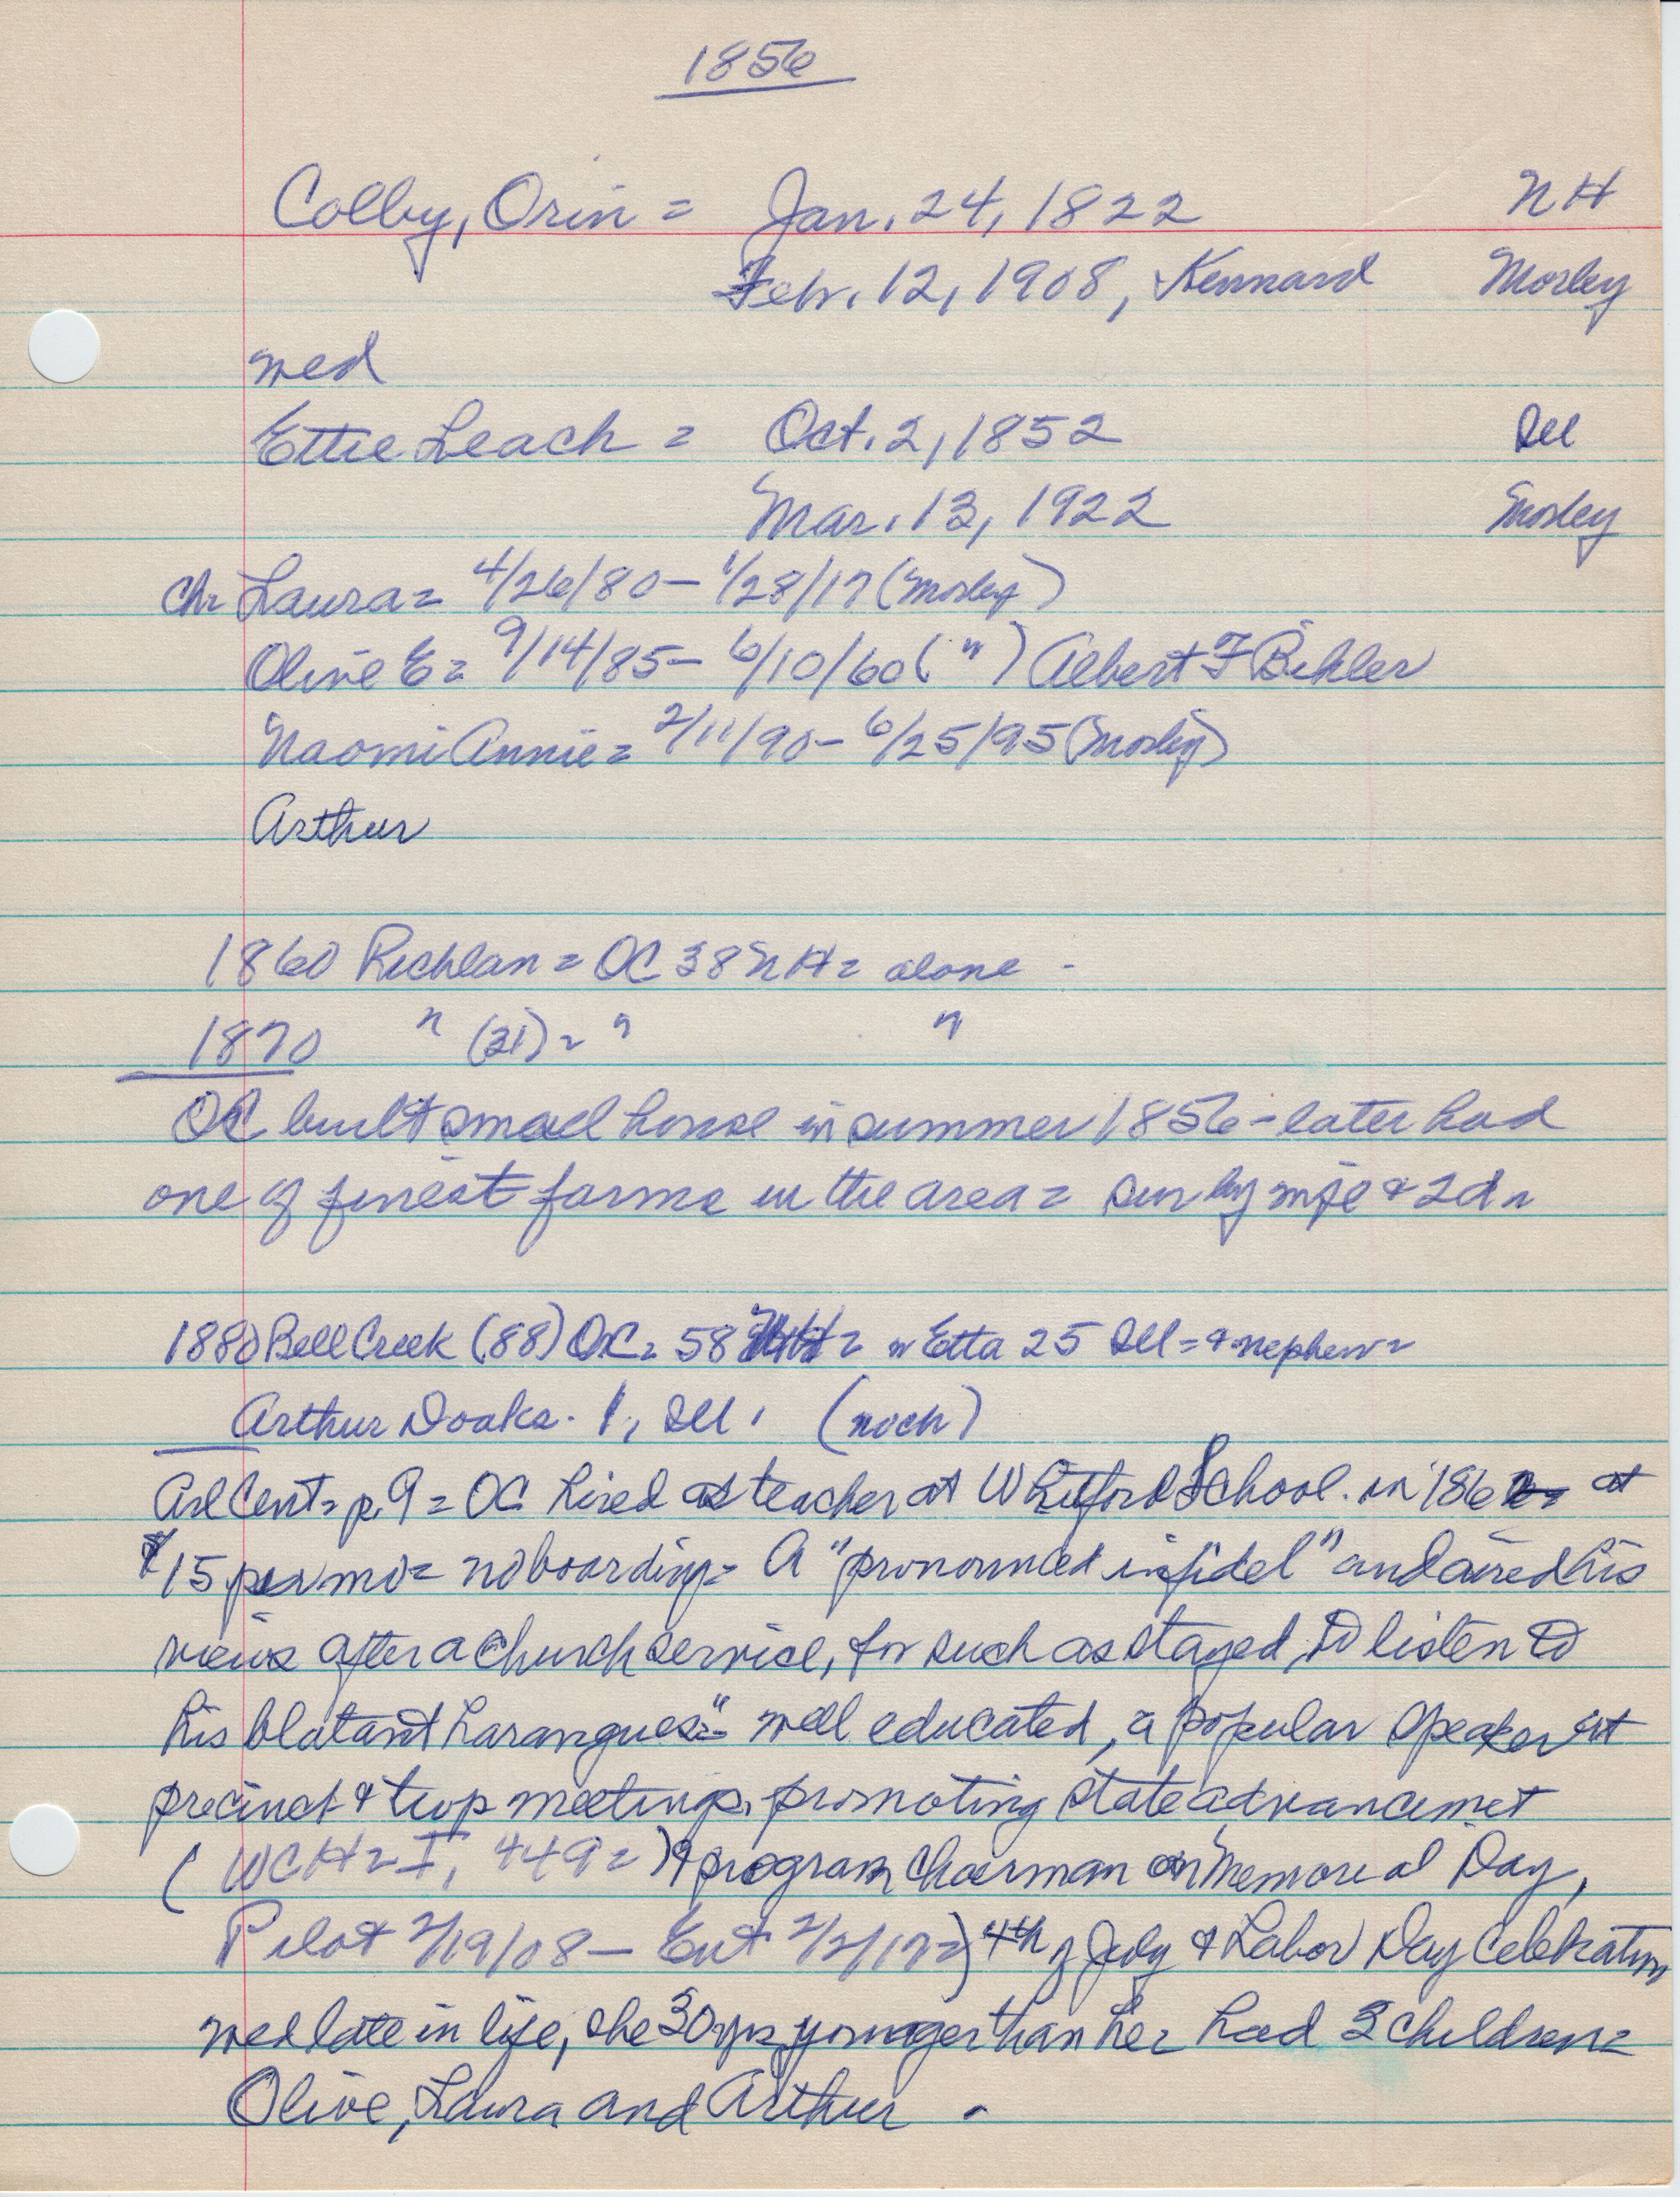 1856
Colby, Orin = Jan. 24, 1822 NH
Febr. 12, 1908, Kennard Morley
wed
Ettie Leach = Oct. 2, 1852 Ill
Mar. 13, 1922 Morley
Ch= Laura = 4/26/80 - 1/28/17 (Morley)
Olive E = 9/14/85 - 6/10/60 ( " ) Albert F Bihler
Naomi Annie = 2/11/90 - 6/25/95 (Morley)
Arthur
1860 Richlan = OC 38 NH = alone -
1870 " (21) = " "
OC built small house in summer 1856 - later had
one of finest farms in the area = sur by wife & 2 d =
1880 Bell Creek (88) OC = 58 = w Etta 25 Ill = & nephew =
Arthur Doaks. 1, Ill. (noch)
Arl Cent = p. 9 = OC hired as teacher at Whitford School. in 186 at
$15 per mo = no boarding = A "pronounced infidel" and aired his
views after a church service, for such as stayed to listen to
his blatant harangues" = well educated, a popular speaker at
precinct & twp meetings, promoting state advancemet
(WCH = I, 449 = ) & program chairman on Memorial Day,
Pilot 2/19/08 - Ent 2/2/17 = ) 4th of July & Labor Day Celebration
wed late in life, she 30 yrs younger than he = had 3 children =
Olive, Laura and Arthur -